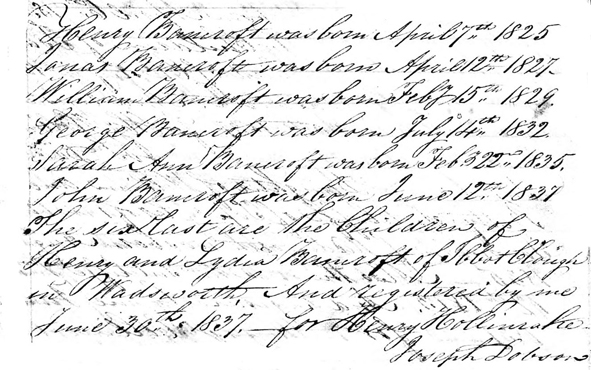 Henry Bancroft was born April 7th 1825
Jonas Bancroft was born April 12th 1827.
William Bancroft was born Feby 15th 1829.
George Bancroft was born July 14th 1832
Sarah Ann Bancroft was born Feby 22nd 1835.
John Bancroft was born June 12th 1837
The six last are the Children of
Henry and Lydia Bancroft of Abbot Clough
in Wadsworth, And registered by me
June 30th 1837. — for Henry Hollinrake
Joseph Dobson